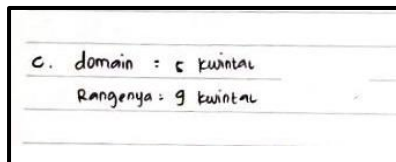 c. domain : 5 kwintal
Rangenya : 9 kwintal